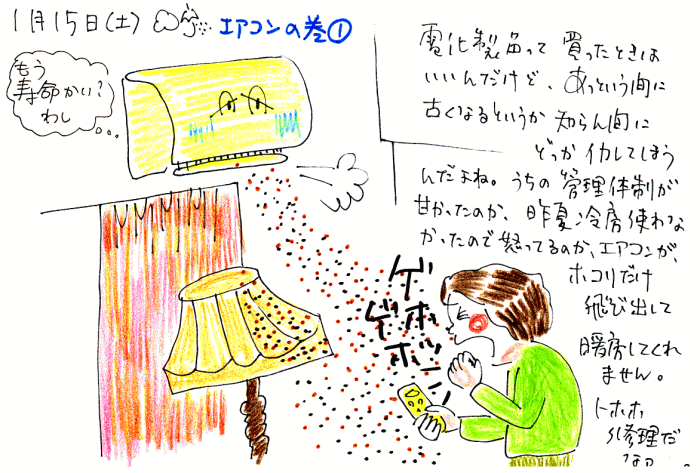 1月15日(土)
エアコンの巻①
もう
寿命かい?
わし
・・・
電化製品って買ったときは
いいんだけど、あっという間に
古くなるというか知らん間に
どっかイカレてしまう
んだよね。うちの管理体制が
甘かったのか、昨夏冷房使わな
かったので怒ってるのか、エアコンが、
ホコリだけ
飛び出して
暖房してくれ
ません。
トホホ
修理だ
ゲホ
ゲホ